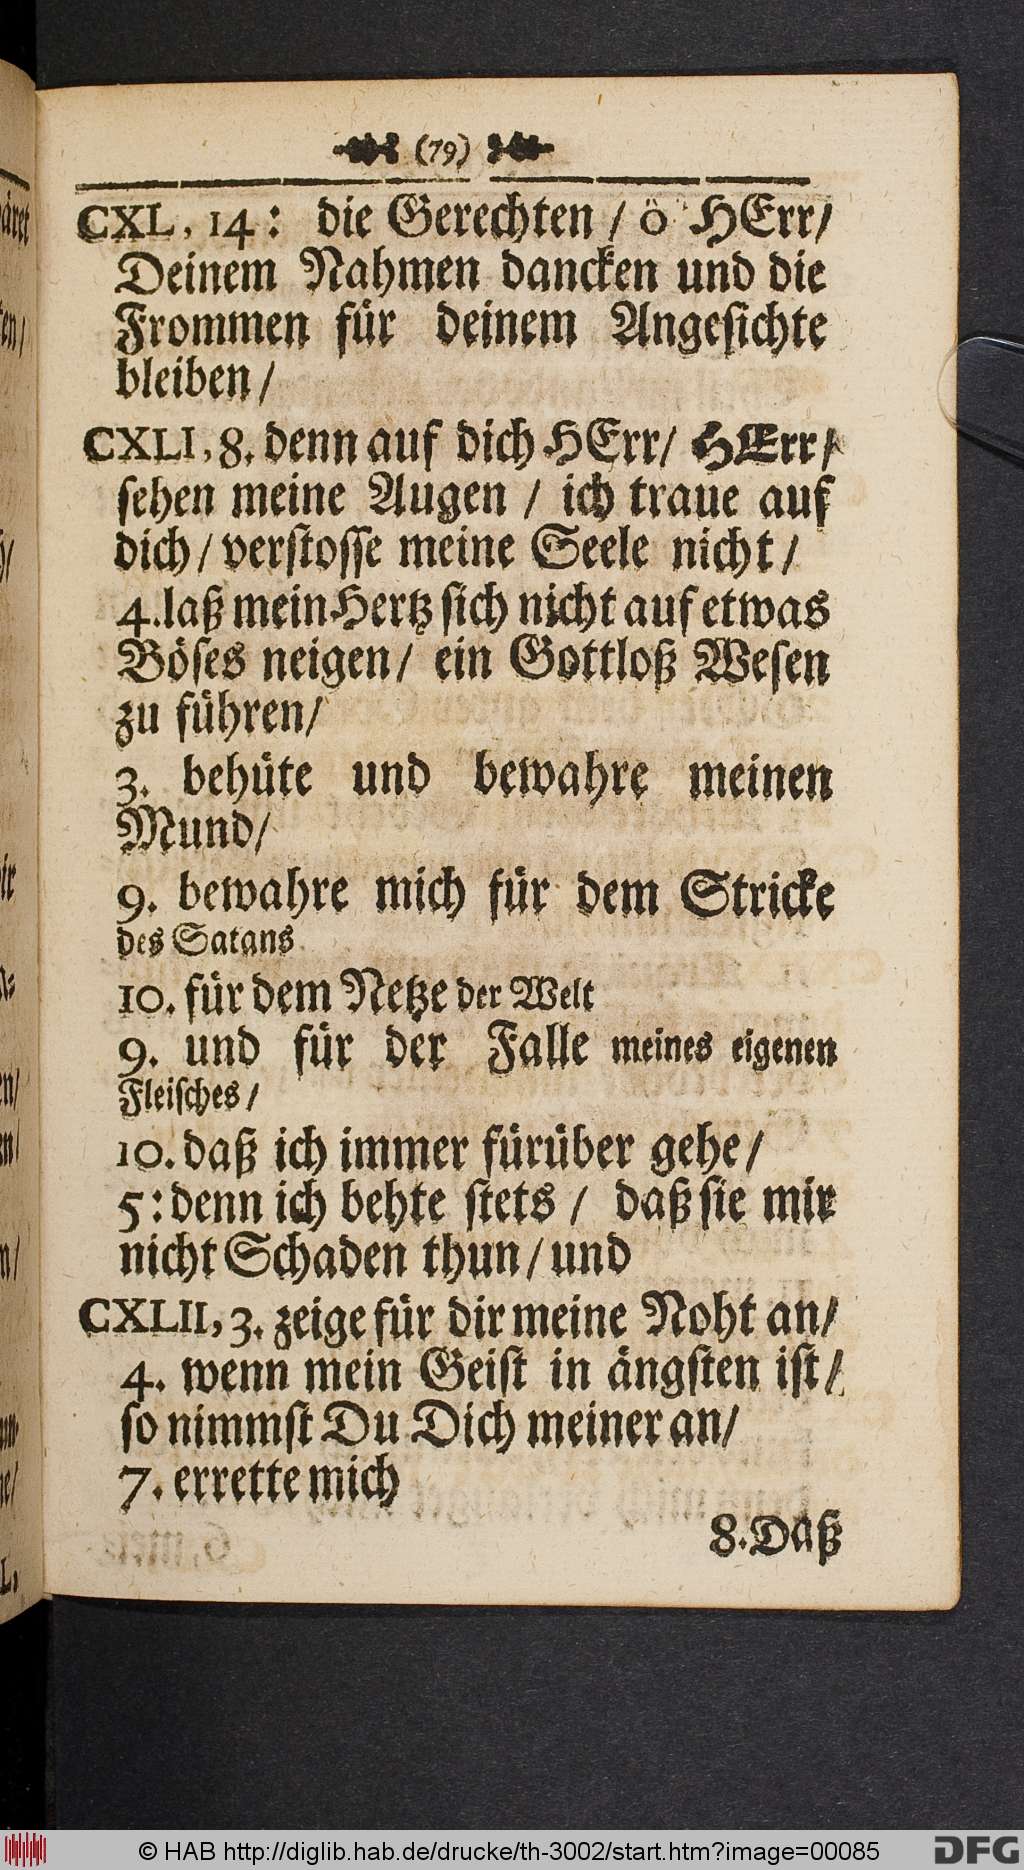 (79)
CXL, 14: die Gerechten / ö HErr/
Deinem Nahmen dancken und die
Frommen für deinem Angesichte
bleiben /
CXLI, 8. denn auf dich HErr/ HErr/
sehen meine Augen / ich traue auf
dich / verstosse meine Seele nicht /
4. laß mein Hertz sich nicht auf etwas
Böses neigen / ein Gottloß Wesen
zu führen/
3. behüte und bewahre meinen
Mund/
9. bewahre mich für dem Stricke
des Satans
10. für dem Netze der Welt
9. und für der Falle meines eigenen
Fleisches /
10. daß ich immer fürüber gehe /
5: denn ich behte stets / daß sie mir
nicht Schaden thun / und
CXLII, 3. zeige für dir meine Noht an/
4. wenn mein Geist in ängsten ist /
so nimmst Du Dich meiner an/
7. errette mich
8. Daß
© HAB http://diglib.hab.de/drucke/th-3002/start.htm?image=00085
DFG